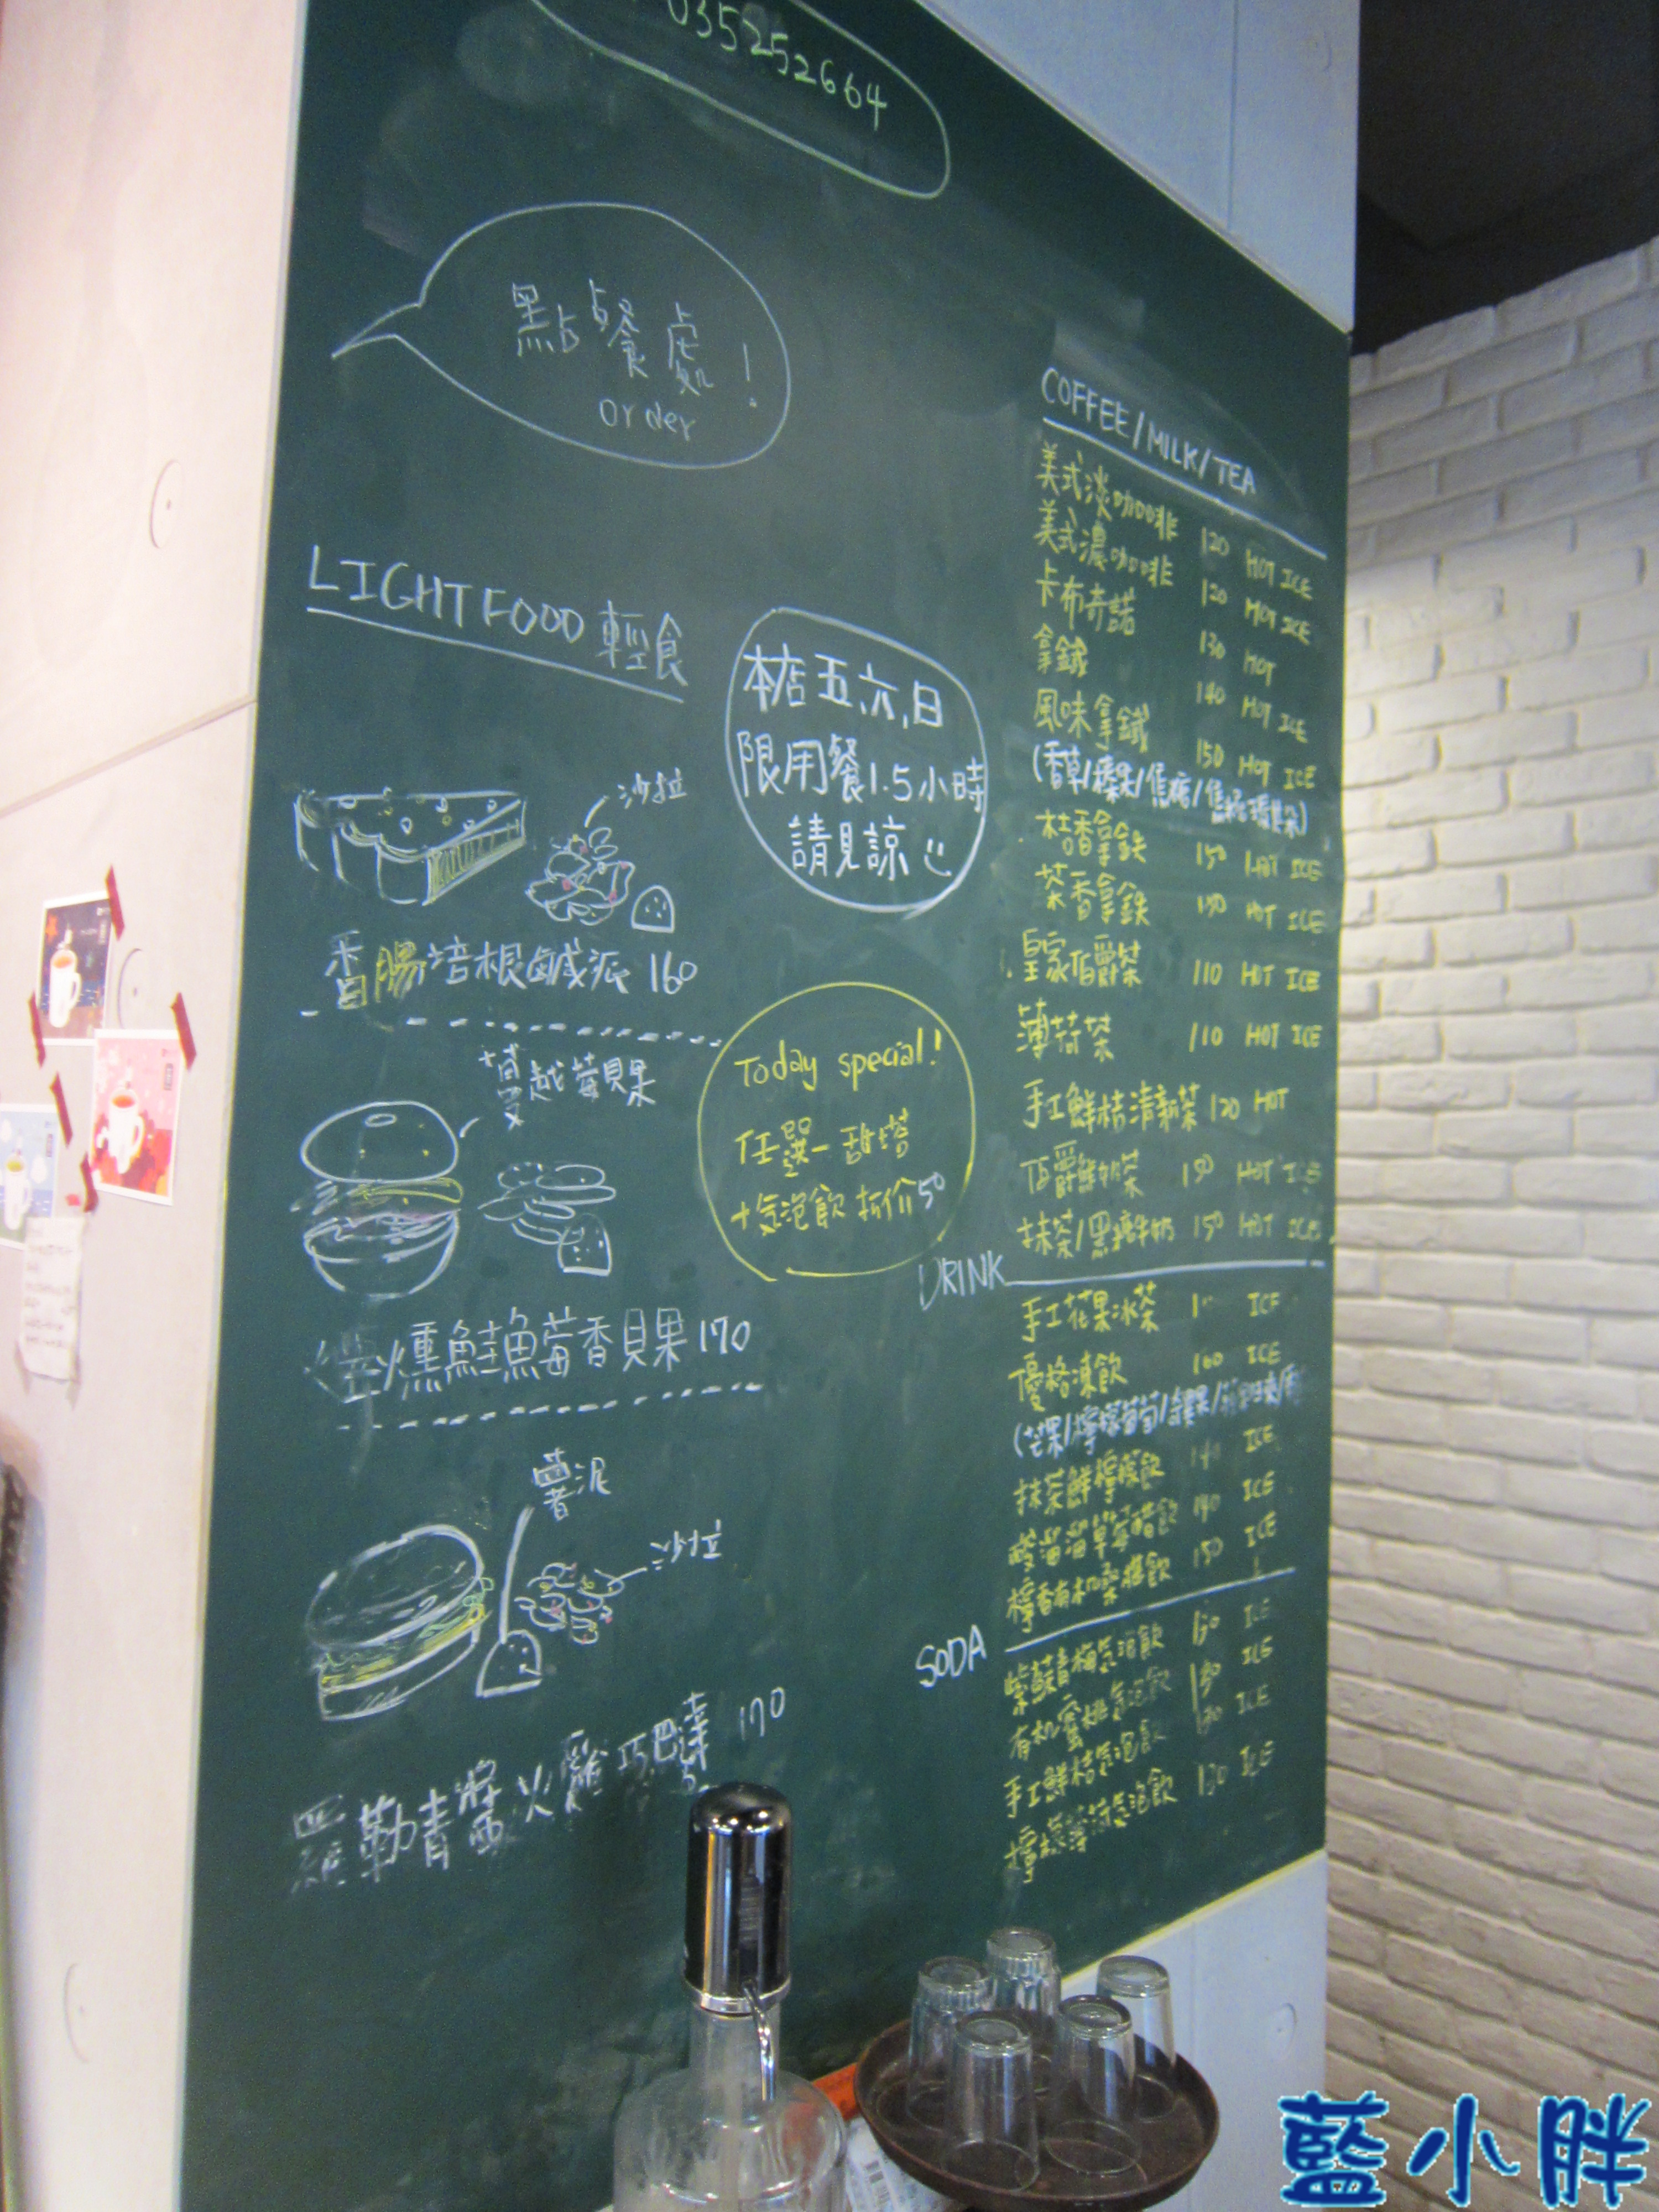 035252664
點餐處!
order
LIGHT FOOD 輕食
沙拉
香腸培根鹹派 160
蔓越莓貝果
燻鮭魚莓香貝果 170
薯泥
沙拉
羅勒青醬火雞巧巴達 170
本店五、六、日
限用餐1.5小時
請見諒
Today special!
任選一甜塔
+氣泡飲 折价50
COFFEE/MILK/TEA
美式淡咖啡 120 HOT ICE
美式濃咖啡 120 HOT ICE
卡布奇諾 130 HOT
拿鐵 140 HOT ICE
風味拿鐵 150 HOT ICE
(香草/榛果/焦糖/焦糖瑪其朵)
桔香拿鉄 150 HOT ICE
茶香拿鉄 150 HOT ICE
皇家伯爵茶 110 HOT ICE
薄荷茶 110 HOT ICE
手工鮮桔清新茶 120 HOT
伯爵鮮奶茶 150 HOT ICE
抹茶/黑糖牛奶 150 HOT ICE
DRINK
手工花果冰茶 ICE
優格凍飲 160 ICE
(芒果/檸檬/葡萄/
抹茶鮮檸檬飲 140 ICE
酸溜溜草莓醋飲 140 ICE
檸香有机桑椹飲 150 ICE
SODA
紫蘇青梅氣泡飲 130 ICE
有机蜜桃氣泡飲 150 ICE
手工鮮桔氣泡飲 130 ICE
檸檬薄荷氣泡飲 130 ICE
藍小胖